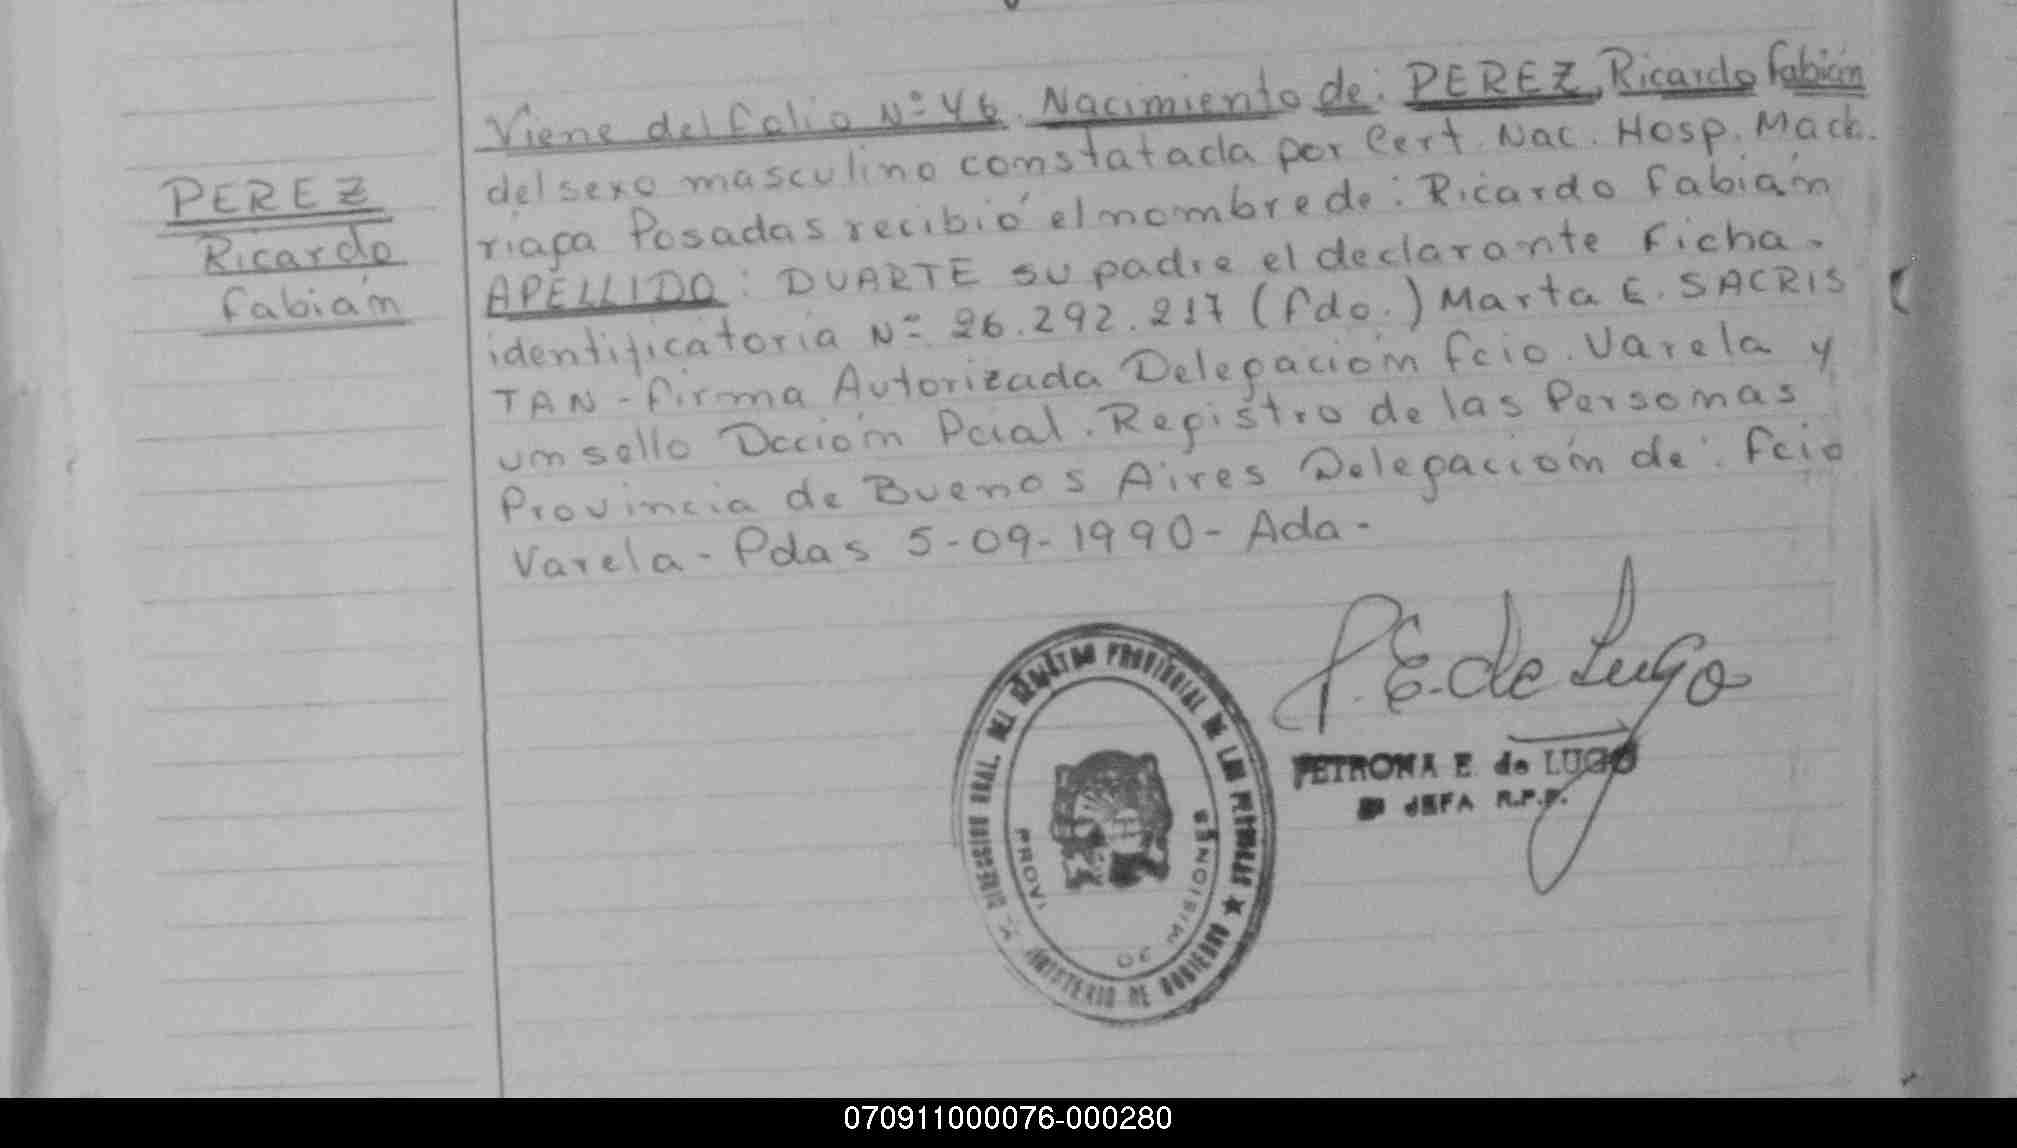 PEREZ
Ricardo
Fabián
Viene del folio Nº 46. Nacimiento de: PEREZ, Ricardo Fabián
del sexo masculino comstatada por Cert. Nac. Hosp. Mach.
riaga Posadas recibió el nombre de: Ricardo Fabián
APELLIDO: DUARTE su padre el declarante Ficha.
identificatoria Nº 26.292.217 (fdo.) Marta E. SACRIS
TAN - firma Autorizada Delegación fcio. Varela y
un sello Dcción Pcial. Registro de las Personas
Provincia de Buenos Aires Delegación de: fcio
Varela - Pdas 5-09-1990 - Ada -
P. E. de Lugo
PETRONA E. de LUGO
JEFA R.P.P.
DIRECCION GRAL. DEL REGISTRO PROVINCIAL DE LAS PERSONAS ★
MINISTERIO DE GOBIERNO
PROV. DE MISIONES
070911000076-000280